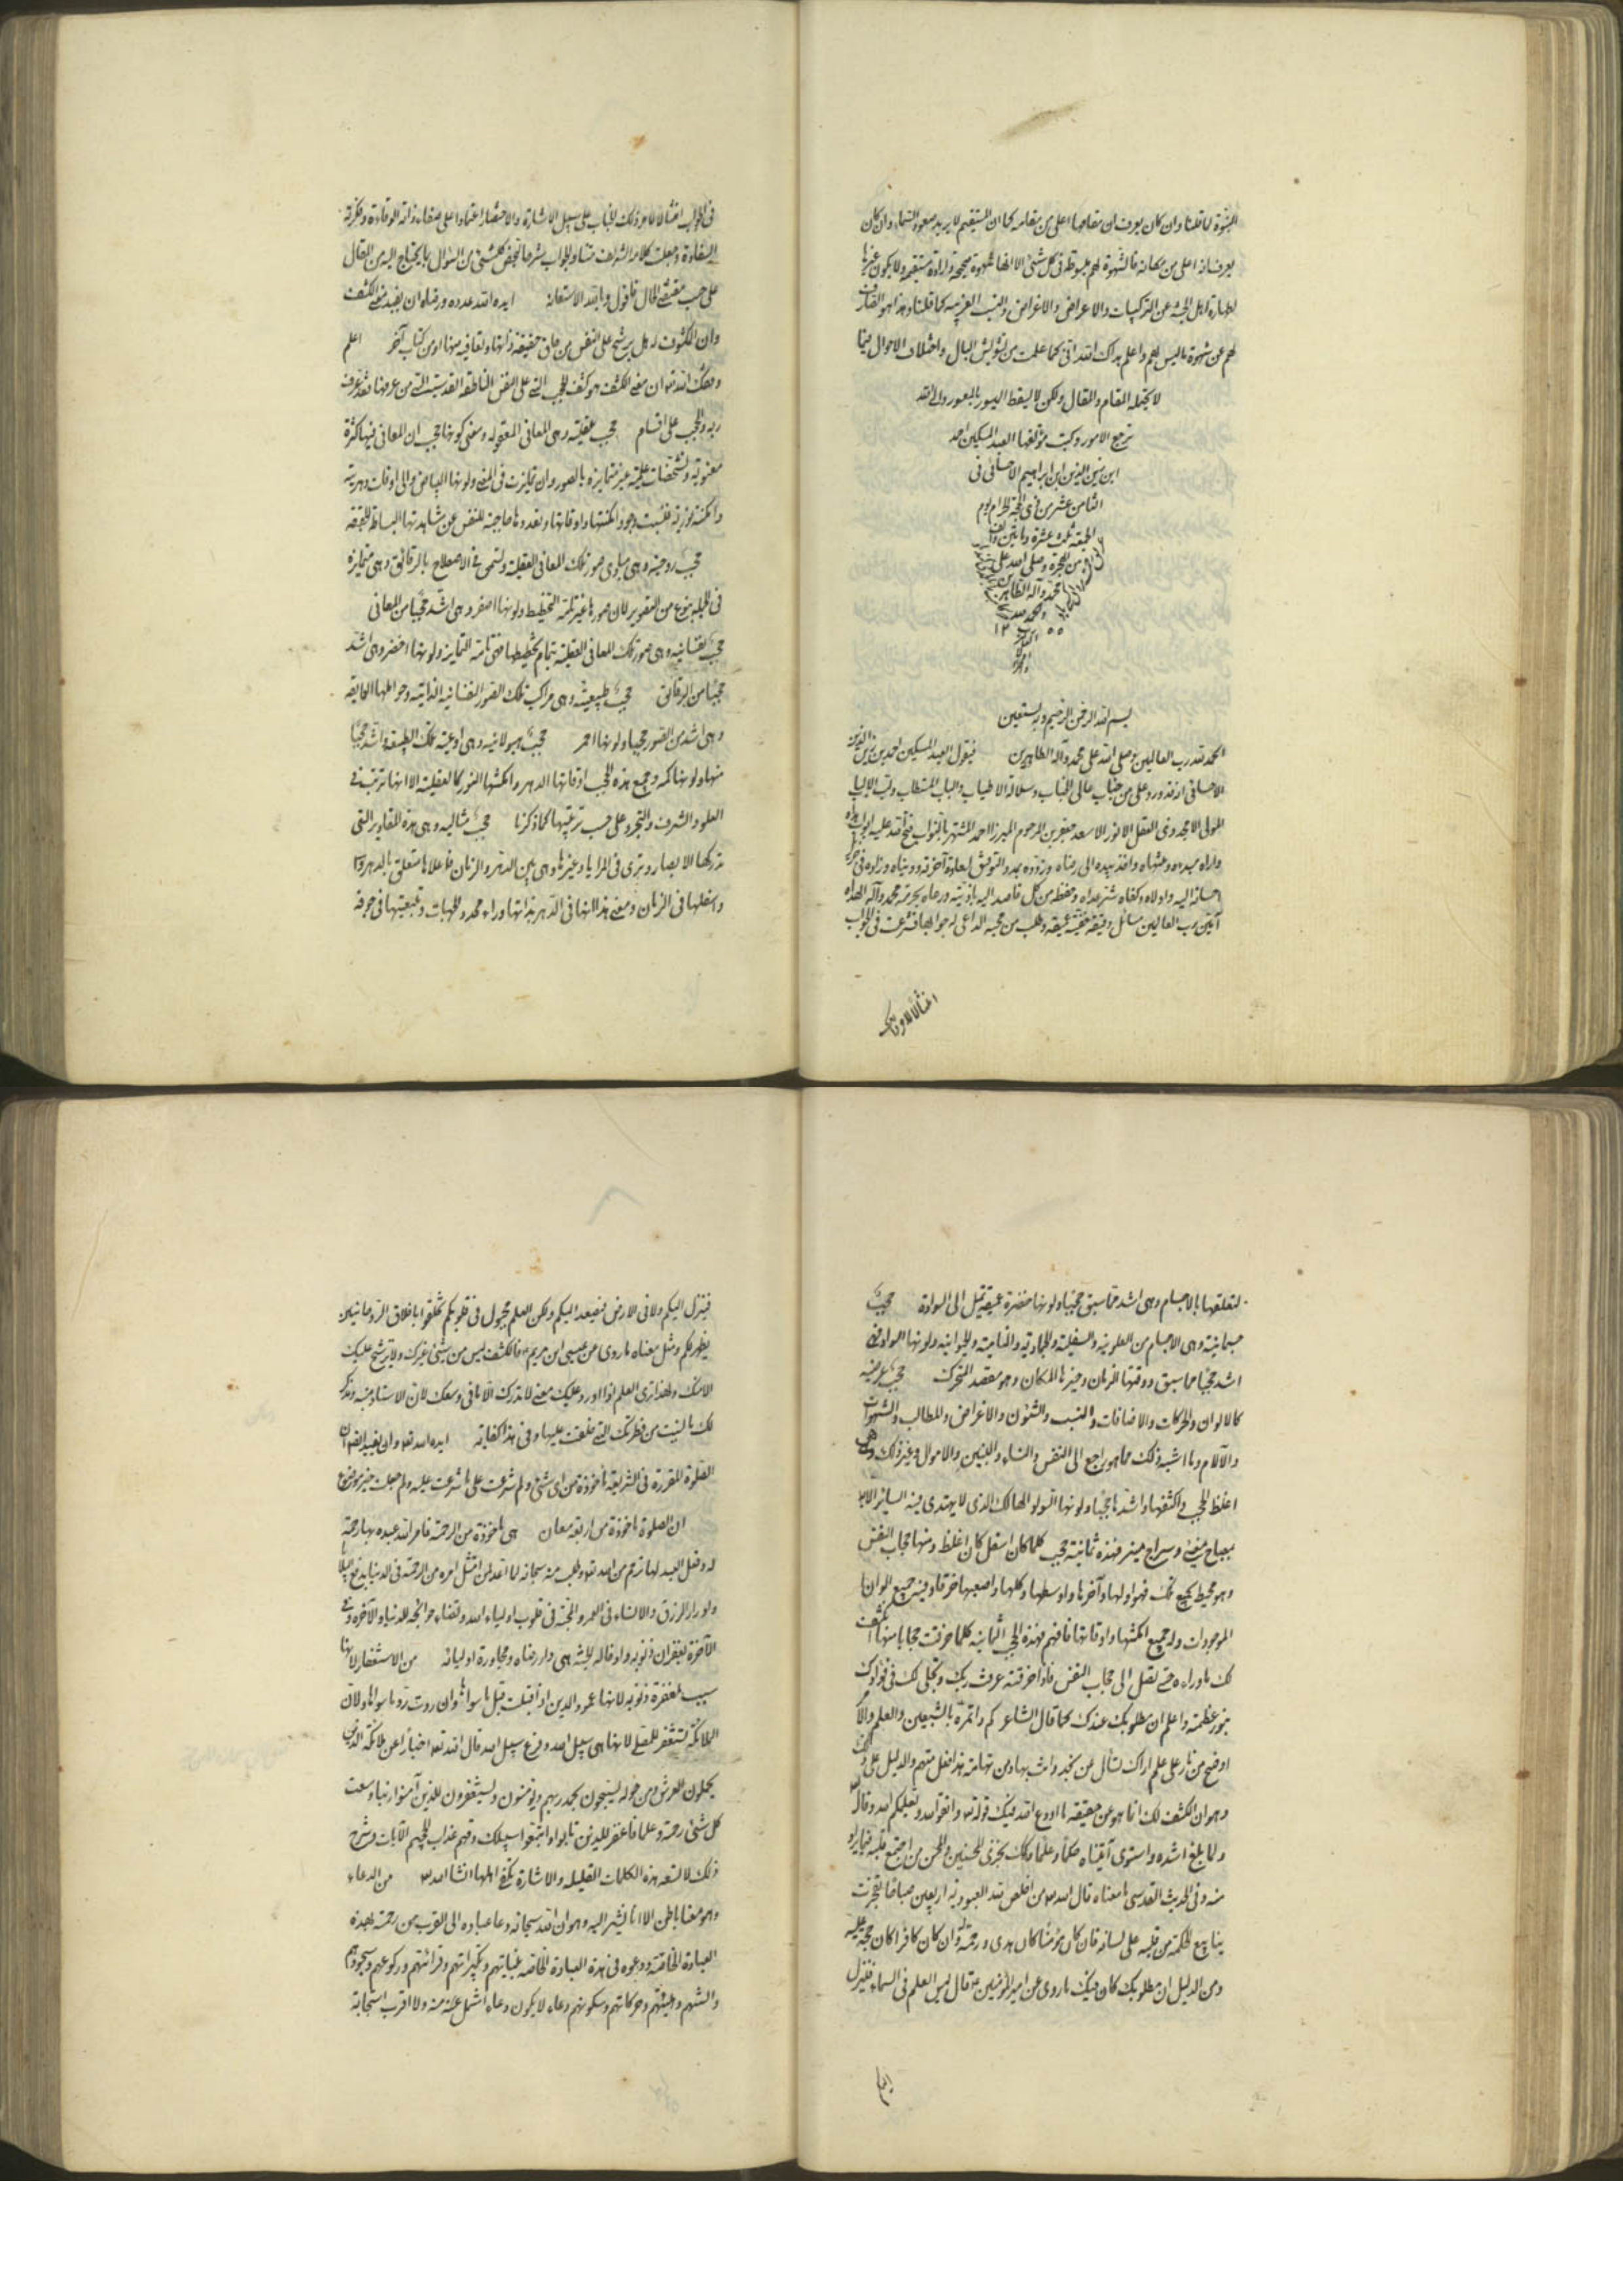 النبوة لما قلنا وان كان يعرف ان مقامها اعلى من مقامه كما ان المستقيم لا يريد صعود السماء وان كان
يعرف انه اعلى من مكانه فالشهوة لهم مبسوطة فى كل شئ الا انها شهوة صحيحة وارادة مستقيمة ولا يكون غيرها
لطهارة اهل الجنة عن التركيبات والاعراض والاغراض والنسب الغريبة كما قلنا وهذا هو الصارف
لهم عن شهوة ما ليس لهم واعلم هداك الله انى كما علمت من تشويش البال واختلاف الاحوال فيما
لا يحتمله المقام والمقال ولكن لا يسقط الميسور بالمعسور والى الله
ترجع الامور وكتب مؤلفها العبد المسكين احمد
ابن زين الدين ابن ابراهيم الاحسائى فى
الثامن عشر من ذى الحجة الحرام يوم
الجمعة عشرة وماتين والف
من الهجرة وصلى الله على
محمد وآله الطاهرين
والحمد لله
بسم الله الرحمن الرحيم وبه نستعين
الحمد لله رب العالمين وصلى الله على محمد وآله الطاهرين فيقول العبد المسكين احمد بن زين الدين
الاحسائى انه قد ورد على من جناب عالى الجناب وسلالة الاطياب والباب المستطاب ولب الالباب
المولى الامجد وذى العقل الانور الاسعد جعفر بن المرحوم الميرزا احمد المشتهر بالنواب فتح الله عليه ابواب
واراه مبدءه ومنتهاه واخذ بيده الى رضاه وزوده بمدد التوفيق لصلاح آخرته ودنياه وزاده فى
احسانه اليه واولاه وكفاه شر عداه وحفظه من كل قاصد اليه باذيته ورعاه بحرمة محمد وآله الهداه
آمين رب العالمين مسائل دقيقة عميقة وطلب من محبه الداعى له جوابها فشرعت فى الجواب
امتثالا لاوامره ذلك
فى الجواب امتثالا لامر ذلك الجناب على سبيل الاشارة والاختصار اعتمادا على صفاء ذاته الوقادة وفكرته
النقادة وجعلت كلامه الشريف متنا والجواب شرحا ليختص كل شئ من السؤال بما يحتاج اليه من المقال
على حسب مقتضى الحال فاقول وبالله الاستعانة ايده الله بمدده ورضاه ان يفيد معنى الكشف
وان الكشوف له هل يرشح على النفس من حاق حقيقة ذاتها وتعاقبه منها او من كتاب آخر اعلم
وفقك الله ان معنى الكشف هو كشف الحجب التى على النفس الناطقة القدسية التى من عرفها فقد عرف
ربه والحجب على اقسام حجب عقلية وهى المعانى المعقولة ومعنى كونها حجب ان المعانى فيها كثرة
معنوية وتشخصات عقلية غير متمايزة بالصور وان تمايزت فى المعنى ولونها البياض والى اوقات دهرية
وامكنة نورية فنسبت وجود امكنتها واوقاتها وتعددها حاجبة للنفس عن مشاهدتها البساطة الحقة
حجب روحية وهى مبادى صور تلك المعانى العقلية وتسمى فى الاصطلاح بالرقائق وهى متمايزة
فى الجملة بنوع من التصوير لان صورها غير تامة التخطيط ولونها اصفر وهى اشد حجبا من المعانى
حجب نفسانية وهى صور تلك المعانى العقلية بتمام تخطيطها فهى تامة التمايز ولونها اخضر وهى اشد
حجبا من الرقائق حجب طبيعية وهى مراكب تلك الصور النفسانية الذاتية وحواملها الحافة
وهى اشد من الصور حجبا ولونها احمر حجب هيولانية وهى اوعية تلك الطبيعة واشد حجبا
منها ولونها كمد وجميع هذه الحجب اوقاتها الدهر وامكنتها النور كالعقلية الا انها تترتب فى
العلو والشرف والتجرد على حسب ترتيبها كما ذكرنا حجب مثالية وهى هذه المقادير التى
تدركها الابصار وترى فى المرايا وغيرها وهى بين الدهر والزمان فاعلاها متعلق بالدهر
واسفلها فى الزمان ومعنى هذا انها فى الدهر بذاتها وراء محدد الجهات وتبعيتها فى جوفه
لتعلقها بالاجسام وهى اشد مما سبق حجبا ولونها خضرة عميقة تميل الى السواد حجب
جسمانية وهى الاجسام من العلوية والسفلية والجمادية والنامية والحيوانية ولونها السواد وهى
اشد حجبا مما سبق ووقتها الزمان وحيزها المكان وهو مقصد المتحرك حجب عرضية
كالالوان والحركات والاضافات والنسب والشئون والاغراض والمطالب والشهوات
والآلام وما اشبه ذلك مما هو راجع الى النفس والنساء والبنين والاموال وغير ذلك وهى
اغلظ الحجب واكثفها واشدها حجبا ولونها السواد الحالك الذى لا يهتدى فيه السائر الا
بمصباح مضئ وسراج منير فهذه ثمانية حجب كلما كان اسفل كان اغلظ ومنها حجاب النفس
وهو محيط بجميع تلك فهو اولها وآخرها واوسطها وكلها واصعبها خرقا وفيه جميع الوان
الموجودات وله جميع امكنتها واوقاتها فافهم فهذه الحجب الثمانية كلما خرقت حجابا منها انكشف
لك ما وراءه حتى تصل الى حجاب النفس فاذا خرقته عرفت ربك وتجلى لك فى فؤادك
بنور عظمته واعلم ان مطلوبك عندك كما قال الشاعر كم ذا تموه بالشعبين والعلم والامر
اوضح من نار على علم اراك تسأل عن نجد وانت بها وعن تهامة هذا فعل متهم والدليل على ذلك
وهو ان الكشف لك انما هو عن حقيقة ما اودع الله فيك قوله واتقوا الله ويعلمكم الله وقال
ولما بلغ اشده واستوى آتيناه حكما وعلما وكذلك نجزى المحسنين
منه وفى الحديث القدسى ما معناه قال الله من اخلص لله العبودية اربعين صباحا تفجرت
ينابيع الحكمة من قلبه على لسانه فان كان مؤمنا كان هدى ورحمة له وان كان كافرا كان حجة عليه
ومن الدليل ان مطلوبك كان فيك ما روى عن امير المؤمنين ع قال ليس العلم فى السماء فينزل
اليكم
فينزل اليكم ولا فى الارض فيصعد اليكم ولكن العلم مجبول فى قلوبكم تخلقوا باخلاق الروحانيين
يظهر لكم ومثل معناه ما روى عن عيسى ابن مريم ع فالكشف ليس من شئ غيرك ولا يرشح عليك
الا منك ولهذا ترى العلم اذا اورد عليك معنى لا تدرك الا ما فى وسعك لان الاستاد ينبه ويذكر
لك ما نسيت من فطرتك التى خلقت عليها وفى هذا كفاية ايده الله تع وان يفيد ايضا ان
الصلوة المقررة فى الشريعة مأخوذة من اى شئ ولم شرعت على ما شرعت عليه ولم جعلت خير موضوع
ان الصلوة مأخوذة من اربعة معان هى مأخوذة من الرحمة فامر الله عبده بها رحمة
له وفعل العبد لها ترحم من الله تع وطلب منه سبحانه لما اعد لمن امتثل امره من الرحمة فى الدنيا بدفع البلاء
وادرار الرزق والانساء فى العمر والمحبة فى قلوب اولياء الله وقضاء حوائجه للدنيا والآخرة وفى
الآخرة بغفران ذنوبه وادخاله الجنة هى دار رضاه ومجاورة اوليائه من الاستغفار لانها
سبب لمغفرة ذنوبه لانها عمود الدين اذا قبلت قبل ما سواها وان ردت رد ما سواها ولان
الملائكة تستغفر للمصلى لانها هى سبيل الله وفرع سبيل الله قال الله تع اخبارا عن ملائكة الذين
يحملون العرش ومن حوله يسبحون بحمد ربهم ويؤمنون به ويستغفرون للذين آمنوا ربنا وسعت
كل شئ رحمة وعلما فاغفر للذين تابوا واتبعوا سبيلك وقهم عذاب الجحيم الآيات وشرح
ذلك لا تسعه هذه الكلمات القليلة والاشارة تكفى اهلها انشا الله من الدعاء
وهو معنا باطن الا انا نشير اليه وهو ان الله سبحانه دعا عباده الى القرب من رحمته بهذه
العبادة الخاصة ودعوه فى هذه العبادة الخاصة بنياتهم وتكبيراتهم وقرائتهم وركوعهم وسجودهم
والسنتهم وهيئتهم وحركاتهم وسكونهم دعاء لا يكون دعاء اشمل منه ولا اقرب استجابة